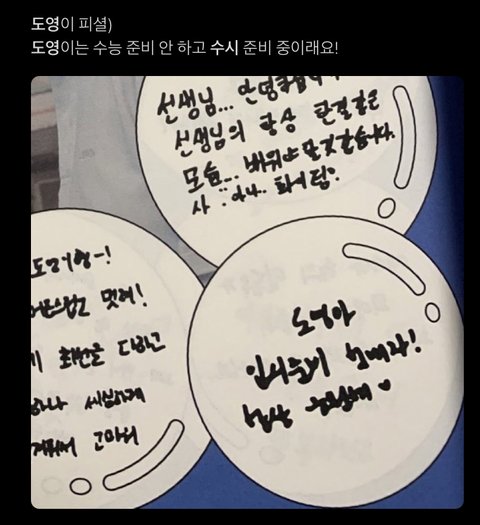 도영이 피셜)
도영이는 수능 준비 안 하고 수시 준비 중이래요!
선생님... 안녕하십니까
선생님의 항상 한결같은
모습... 배워야 할 것 같습니다.
사..아니.. 화이팅!
도영이형~!
멋져!
하나 세심하게
고마워
도영아
입시준비 힘내라!
항상 응원해♥